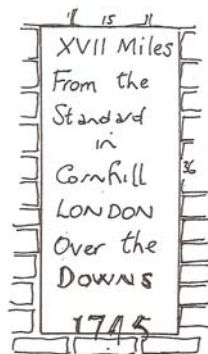 15
XVII Miles
From the
Standard
in
Cornhill
36
LONDON
Over the
DOWNS
1745